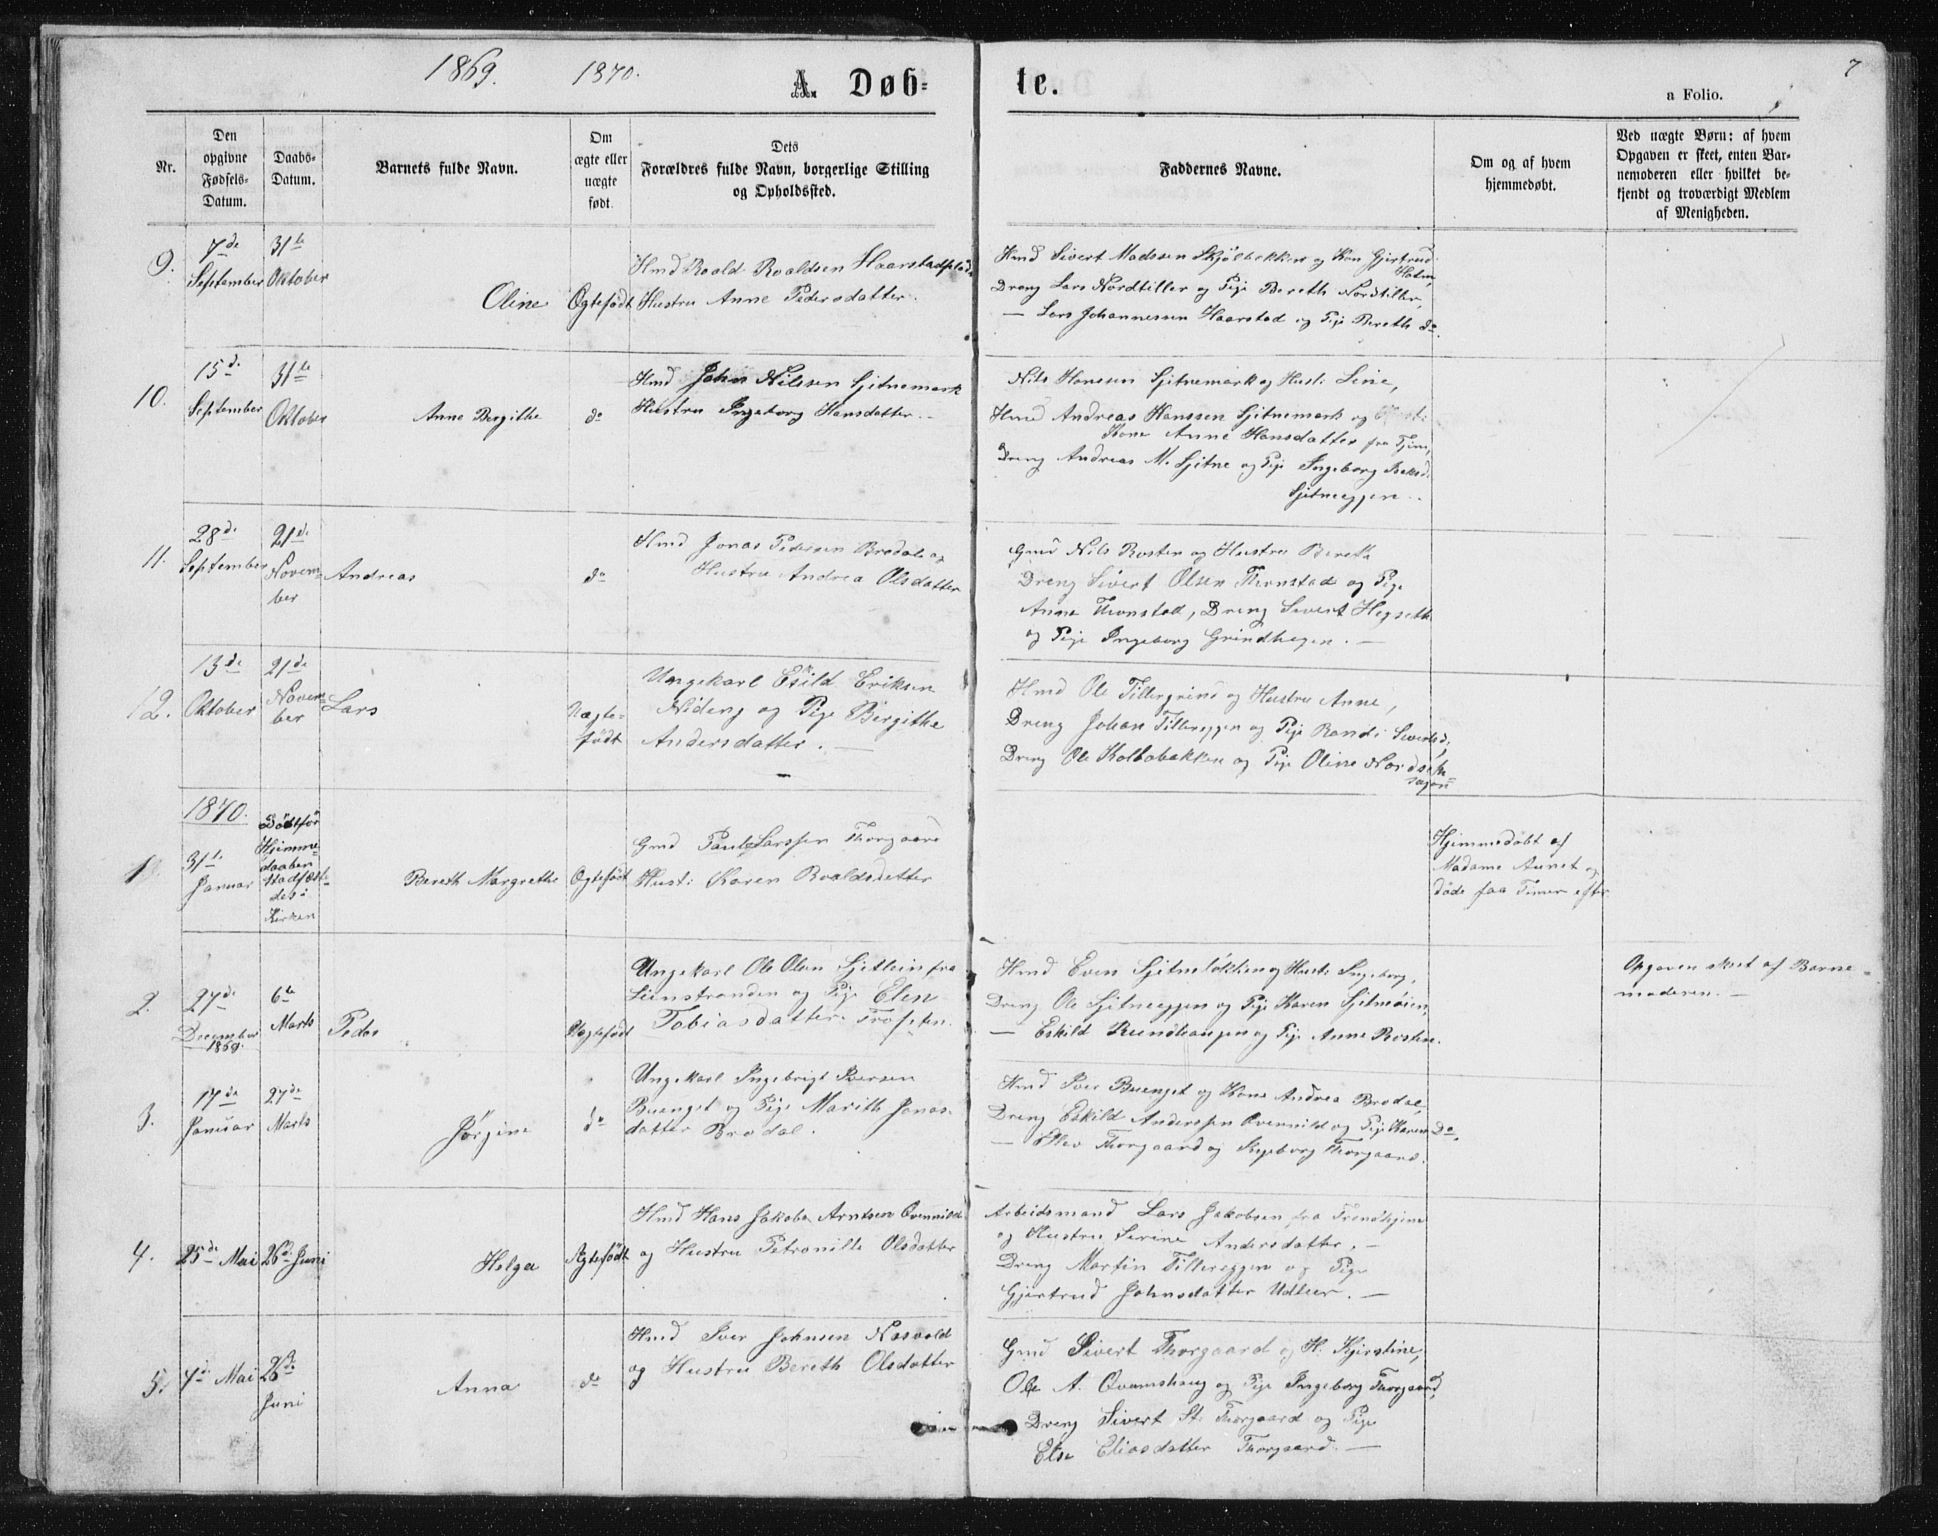 1869. 1870.
A. Døb-
te.
7
a Folio.
Nr.
Den opgivne Fødsels-Datum.
Daabs-Datum.
Barnets fulde Navn.
Om ægte eller uægte født.
Dets Forældres fulde Navn, borgerlige Stilling og Opholdssted.
Faddernes Navne.
Om og af hvem hjemmedøbt.
Ved uægte Børn: af hvem Opgaven er skeet, enten Barnemoderen eller hvilket bekjendt og troværdigt Medlem af Menigheden.
9.
7de September
31te Oktober
Oline
Ægtefødt
Hmd Roald Roaldsen Haarstadplads
Hustru Anne Pedersdatter.
Hmd Sivert Madssen Skjølbakken og Kon Gjertrud Holm,
Dreng Lars Nordtiller og Pige Bereth Nordtiller,
— Lars Johannessen Haarstad og Pige Bereth do.
10.
15de September
31te Oktober
Anne Bergithe
do
Hmd John Nilssen Sjetnemark
Hustru Ingeborg Hansdatter.
Nils Hanssen Sjetnemark og Hust: Line,
Hmd Andreas Hanssen Sjetnemark og
Kone Anne Hansdatter fra
Dreng Andreas M. Sjetne og Pige Ingeborg
Sjetneeggen.
11.
28de September
21de November
Andreas
do
Hmd Jonas Pedersen Brødal og
Hustru Andrea Olsdatter
Gmd Nils Rosten og Hustru Bereth
Dreng Sivert Olsen Thonstad og Pige
Anne Thonstad, Dreng Sivert Hegseth
og Pige Ingeborg Grindhagen. —
12.
13de Oktober
21de November
Lars
Uægtefødt
Ungekarl Eskild Eriksen
Nideng og Pige Bergithe
Andersdatter. —
Hmd Ole Tillergrind og Hustru Anne,
Dreng Johan Tillereggen og Pige Randi Sivertsd,
Dreng Ole Kolbobakken og Pige Oline
1870.
1
31te Januar
Hjemmedaaben stadfæstedes i Kirken
Bereth Margrethe
Ægtefødt
Gmd Paul Larssen Thorgaard
Hust: Karen Roaldsdatter
Hjemmedøbt af
Madame Aunet og
døde faa Timer efter
2.
27de December 1869.
6te Marts
Peder
Uægtefødt
Ungekarl Ole Olsen Sjetlein fra
Leinstranden og Pige Elen
Tobiasdatter
Hmd Even Sjetneløkken og Hust: Ingeborg,
Dreng Ole Sjetneeggen og Pige Karen Sjetnøien,
— Eskild Rundhaugen og Pige Anne Rosten.
Opgaven skeet af Barne-
moderen. —
3.
17de Januar
27de Marts
Jørgine
do
Ungekarl Ingebrigt Iversen
Buenget og Pige Marith Jonas-
datter Brødal.
Hmd Iver Buenget og Kone Andrea Brødal,
Dreng Eskild Anderssen Kvenild og Pige Karen Do,
— Thorgaard og Ingeborg Thorgaard.
4.
25de Mai
26de Juni
Helga
Ægtefødt
Hmd Hans Jakob Arntsen Qvenild
og Hustru Petronille Olsdatter
Arbeidsmand Lars Jakobsen fra Trondhjem
og Hustru Serine Andersdatter. —
Dreng Martin Tillereggen og Pige
Gjertrud Johnsdatter Udleer. —
5.
7de Mai
26de Juni
Anna
do
Hmd Iver Johnsen Nøsvold
og Hustru Bereth Olsdatter
Gmd Sivert Thorgaard og H. Kjerstine,
Ole A. Qvamshaug og Pige Ingeborg Thorgaard,
Dreng Sivert St. Thorgaard og Pige
Else Eliasdatter Thorgaard. —